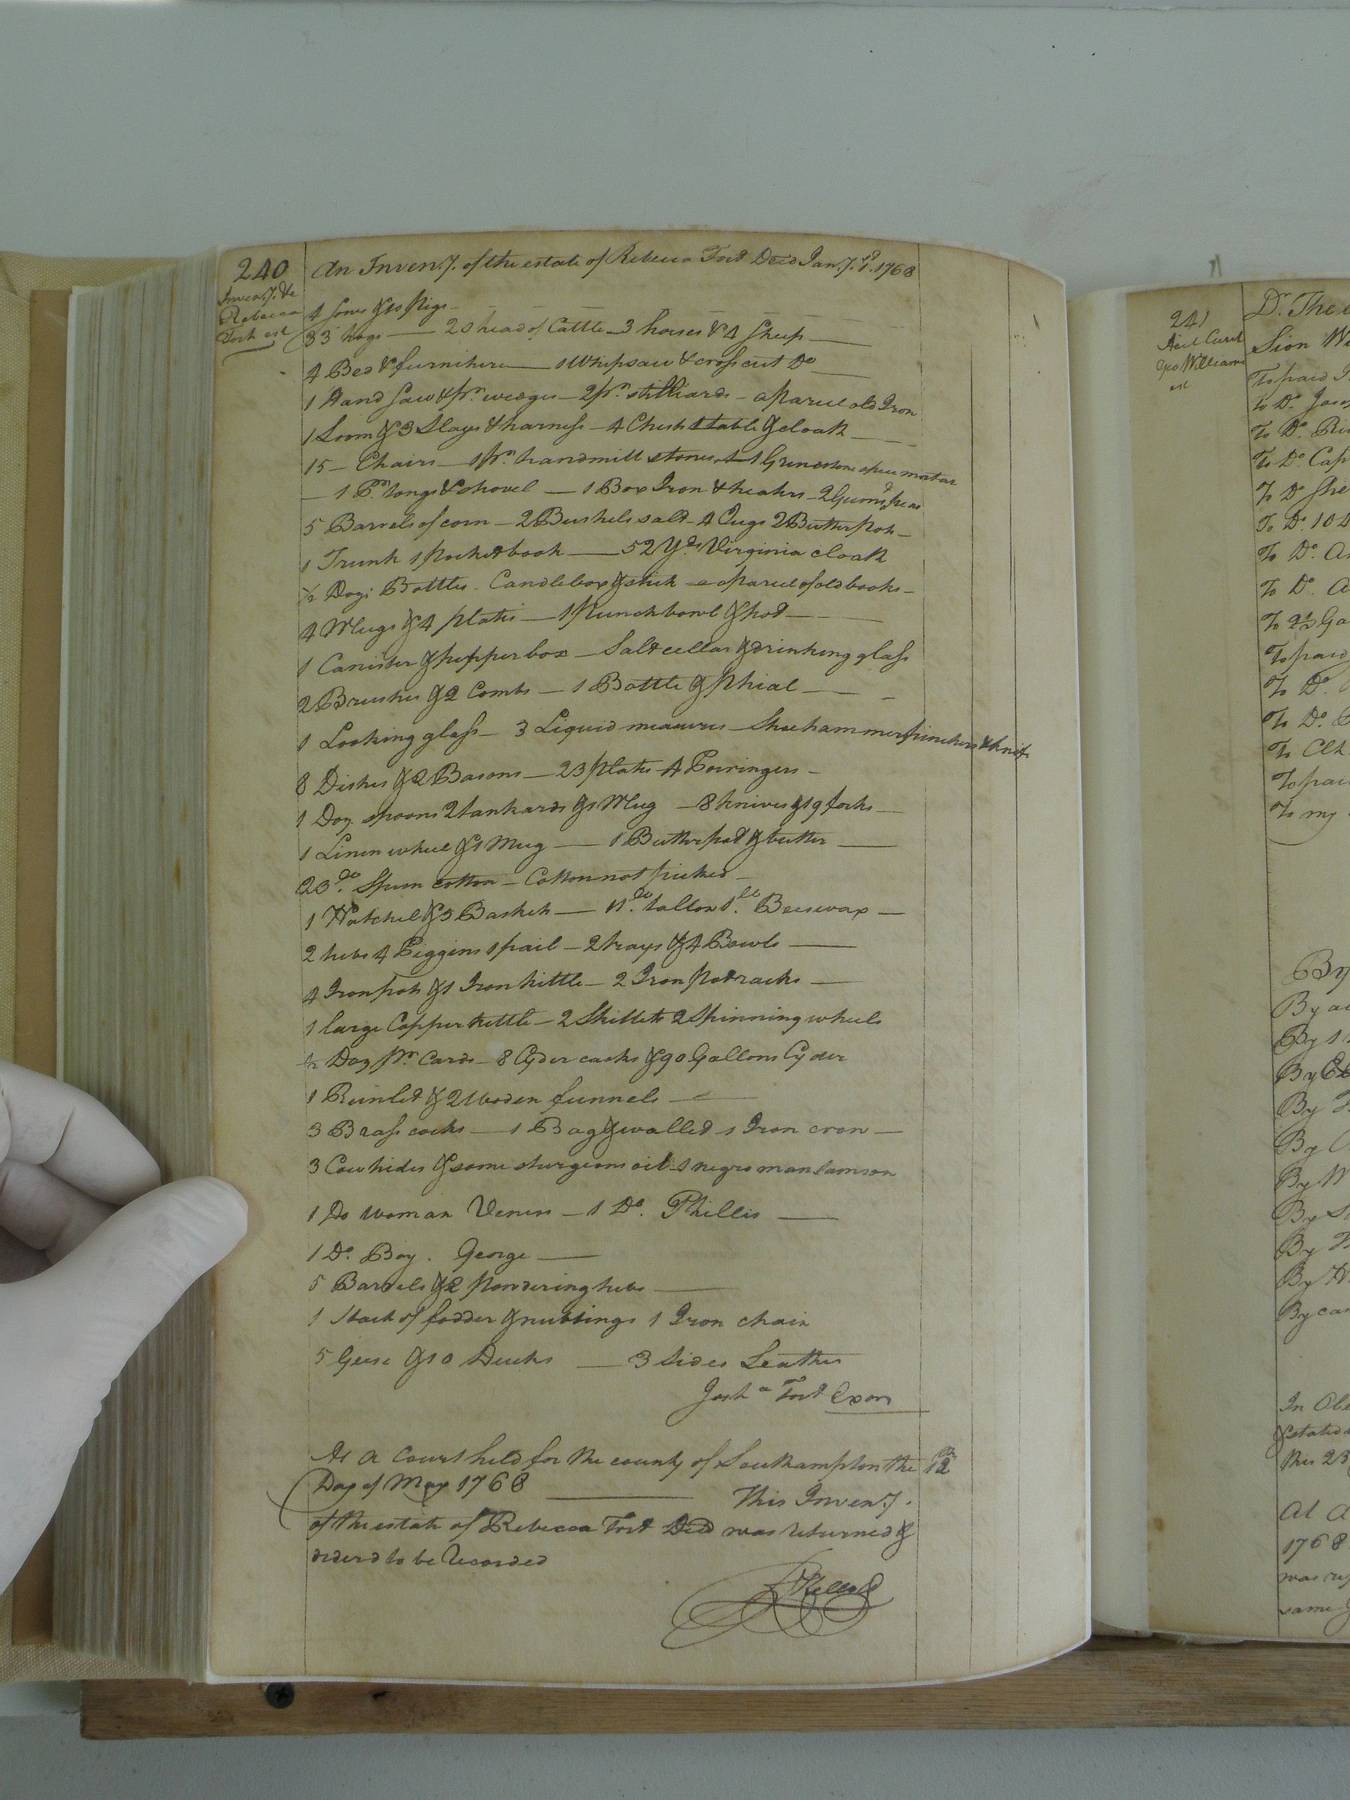 240
Inven.y &c
Rebecca
Fort est
An Inven.y. of the estate of Rebecca Fort Decd Jan.y. 1768
4 sows & 10 Pigs
33 hogs — 20 head of Cattle — 3 horses & 4 sheep —
4 Bed & furniture — 1 Whipsaw & cross cut Do —
1 Hand saw & pr. wedges — 2 pr. stilliards — a parcel old Iron
1 Loom & 3 Slays & harness — 4 Chests 1 table & cloath —
15 — Chairs — 1 pr. handmill stones & 1 Grinestone
— 1 Pr tongs & shovel — 1 Box Iron & heaters — 2 Guns
5 Barrels of corn — 2 Bushels salt — 4 Jugs 2 Butter pots —
1 Trunk 1 pocket book — 52 Yds Virginia cloath
½ Doz: Bottles. Candlebox & stick — a parcel of old books —
4 Mugs & 4 plates — 1 punch bowl & pot —
1 Canister & pepper box — Salt cellar & drinking glass
2 Brushes & 2 Combs — 1 Bottle & Phial —
1 Looking glass — 3 Liquid measures — Shoe hammer pinchers & knife
8 Dishes & 2 Basons — 23 plates 4 Porringers —
1 Doz. spoons 2 tankards & 1 Mug — 8 knives & 19 forks —
1 Linen wheel & 1 Mug — 1 Butter pot & butter —
23 lb. Spun cotton — Cotton not picked —
1 Hatchel & 3 Baskets — 11 lb. tallow 1 lb. Beeswax —
2 tubs 4 Piggins 1 pail — 2 trays & 4 Bowls —
4 Iron pots & 1 Iron kettle — 2 Iron Potracks —
1 large Copper kettle — 2 Skillets 2 Spinning wheels
½ Doz pr. Cards — 8 Cyder casks & 90 Gallons Cyder
1 Runlet & 2 Wooden funnels —
3 Brass cocks — 1 Bag & wallet 1 Iron crow —
3 Cow hides & some sturgeons oil 1 negro man Samson
1 Do woman Venus — 1 Do. Phillis —
1 Do. Boy. George —
5 Barrels & 2 powdering tubs —
1 stack of fodder & nubbings 1 Iron chain
5 Geese & 10 Ducks — 3 Sides Leather
Josha Fort Exor
At a Court held for the county of Southampton the 12
Day of May 1768 — This Inven.y.
of the estate of Rebecca Fort Decd was returned &
orderd to be recorded
241
Acct Curent
Geo Williams
est
Sion
To paid
To Do.
To Do.
To Do.
To Do
To Do. 10
To Do.
To Do.
To paid
To Do.
To Do.
To my
By
By
By
By
By
By
By
By
By
By
In
this 23
At a
1768
same